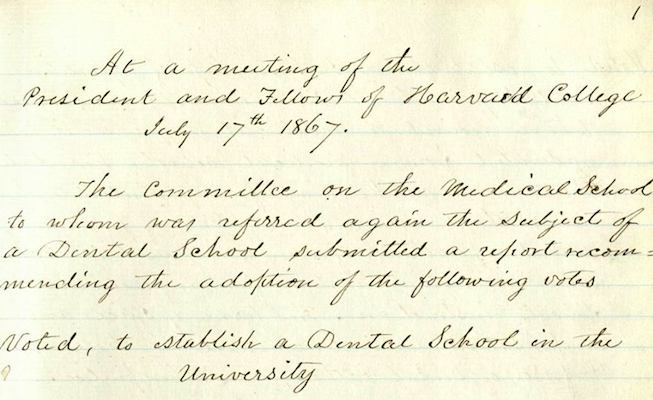 1
At a meeting of the
President and Fellows of Harvard College
July 17th 1867.
The Committee on the Medical School
to whom was referred again the subject of
a Dental School submitted a report recom=
mending the adoption of the following votes
Voted, to establish a Dental School in the
University